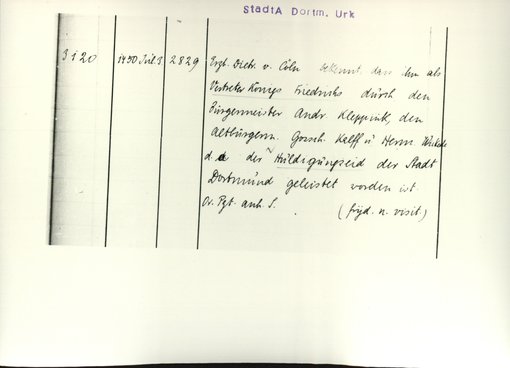 StadtA Dortm. Urk
3120 1450 Juli 3 2829 Erzb. Dietr. v. Cöln bekennt, dass ihm als
Vertreter Königs Friedrichs durch den
Bürgermeister Andr. Kleppink, den
Altbürgerm. Gosch. Kalff u Herm. Wickede
d. der Huldigungseid der Stadt
Dortmund geleistet worden ist.
Or. Pgt. anh. S. (fryd. n. visit.)